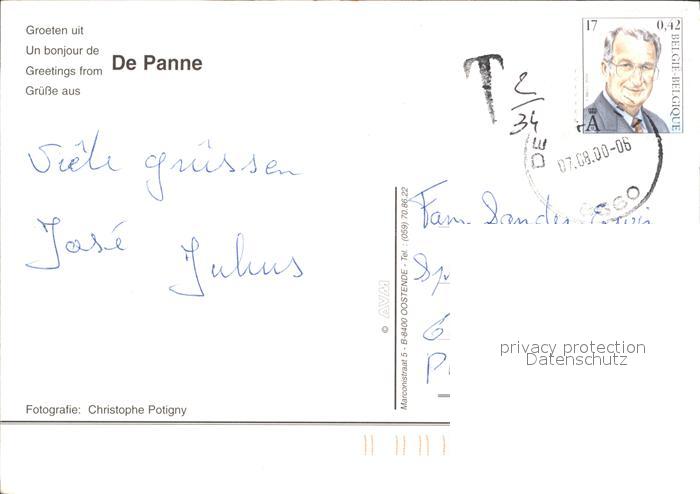 Groeten uit
Un bonjour de
Greetings from De Panne
Grüße aus
17 0,42
BELGIE-BELGIQUE
T 2/34
DE
07.08.00-06
Viele grüssen
José Julius
Fam. Sander
© AVM
Marconistraat 5 - B-8400 OOSTENDE - Tel.: (059) 70.86.22
privacy protection
Datenschutz
Fotografie: Christophe Potigny